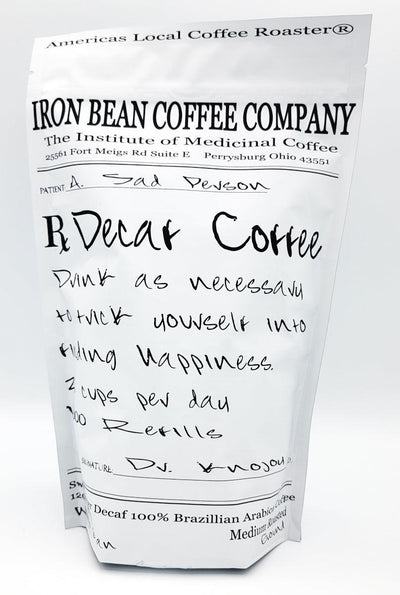 Americas Local Coffee Roaster®
IRON BEAN COFFEE COMPANY
The Institute of Medicinal Coffee
25561 Fort Meigs Rd Suite E Perrysburg Ohio 43551
PATIENT A. Sad Person
Rx Decaf Coffee
Drink as necessary
to trick yourself into
finding happiness.
2 cups per day
Refills
SIGNATURE: Dr. Knojoy
Decaf 100% Brazillian Arabica Coffee
Medium Roasted
Ground